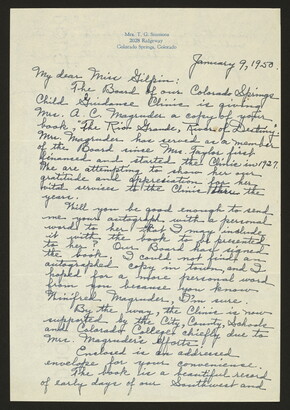 Mrs. T. G.
Ridgeway
Colorado Springs, Colorado
January 9, 1950
My dear Miss Gilpin:
The Board of our Colorado Springs
Child Guidance Clinic is giving
Mrs. A. C. Magruder a copy of your
book, "The Rio Grande, River of Destiny".
Mrs. Magruder has served as a member
of the Board since Mrs. Taylor first
financed and started the Clinic in 1927.
We are attempting to show her our
gratitude and appreciation for her
vital services to the Clinic thru the
years.
Will you be good enough to send
me your autograph with a personal
word to her that I may include
it with the book to be presented
to her? Our Board has signed
the book. I could not find an
autographed copy in town, and I
hoped for a more personal word
from you because you know
Winifred Magruder, I'm sure.
By the way, the Clinic is now
supported by the City, County, Schools
and Colorado College chiefly due to
Mrs. Magruder's efforts.
Enclosed is an addressed
envelope for your convenience.
The book is a beautiful record
of early days of our Southwest and